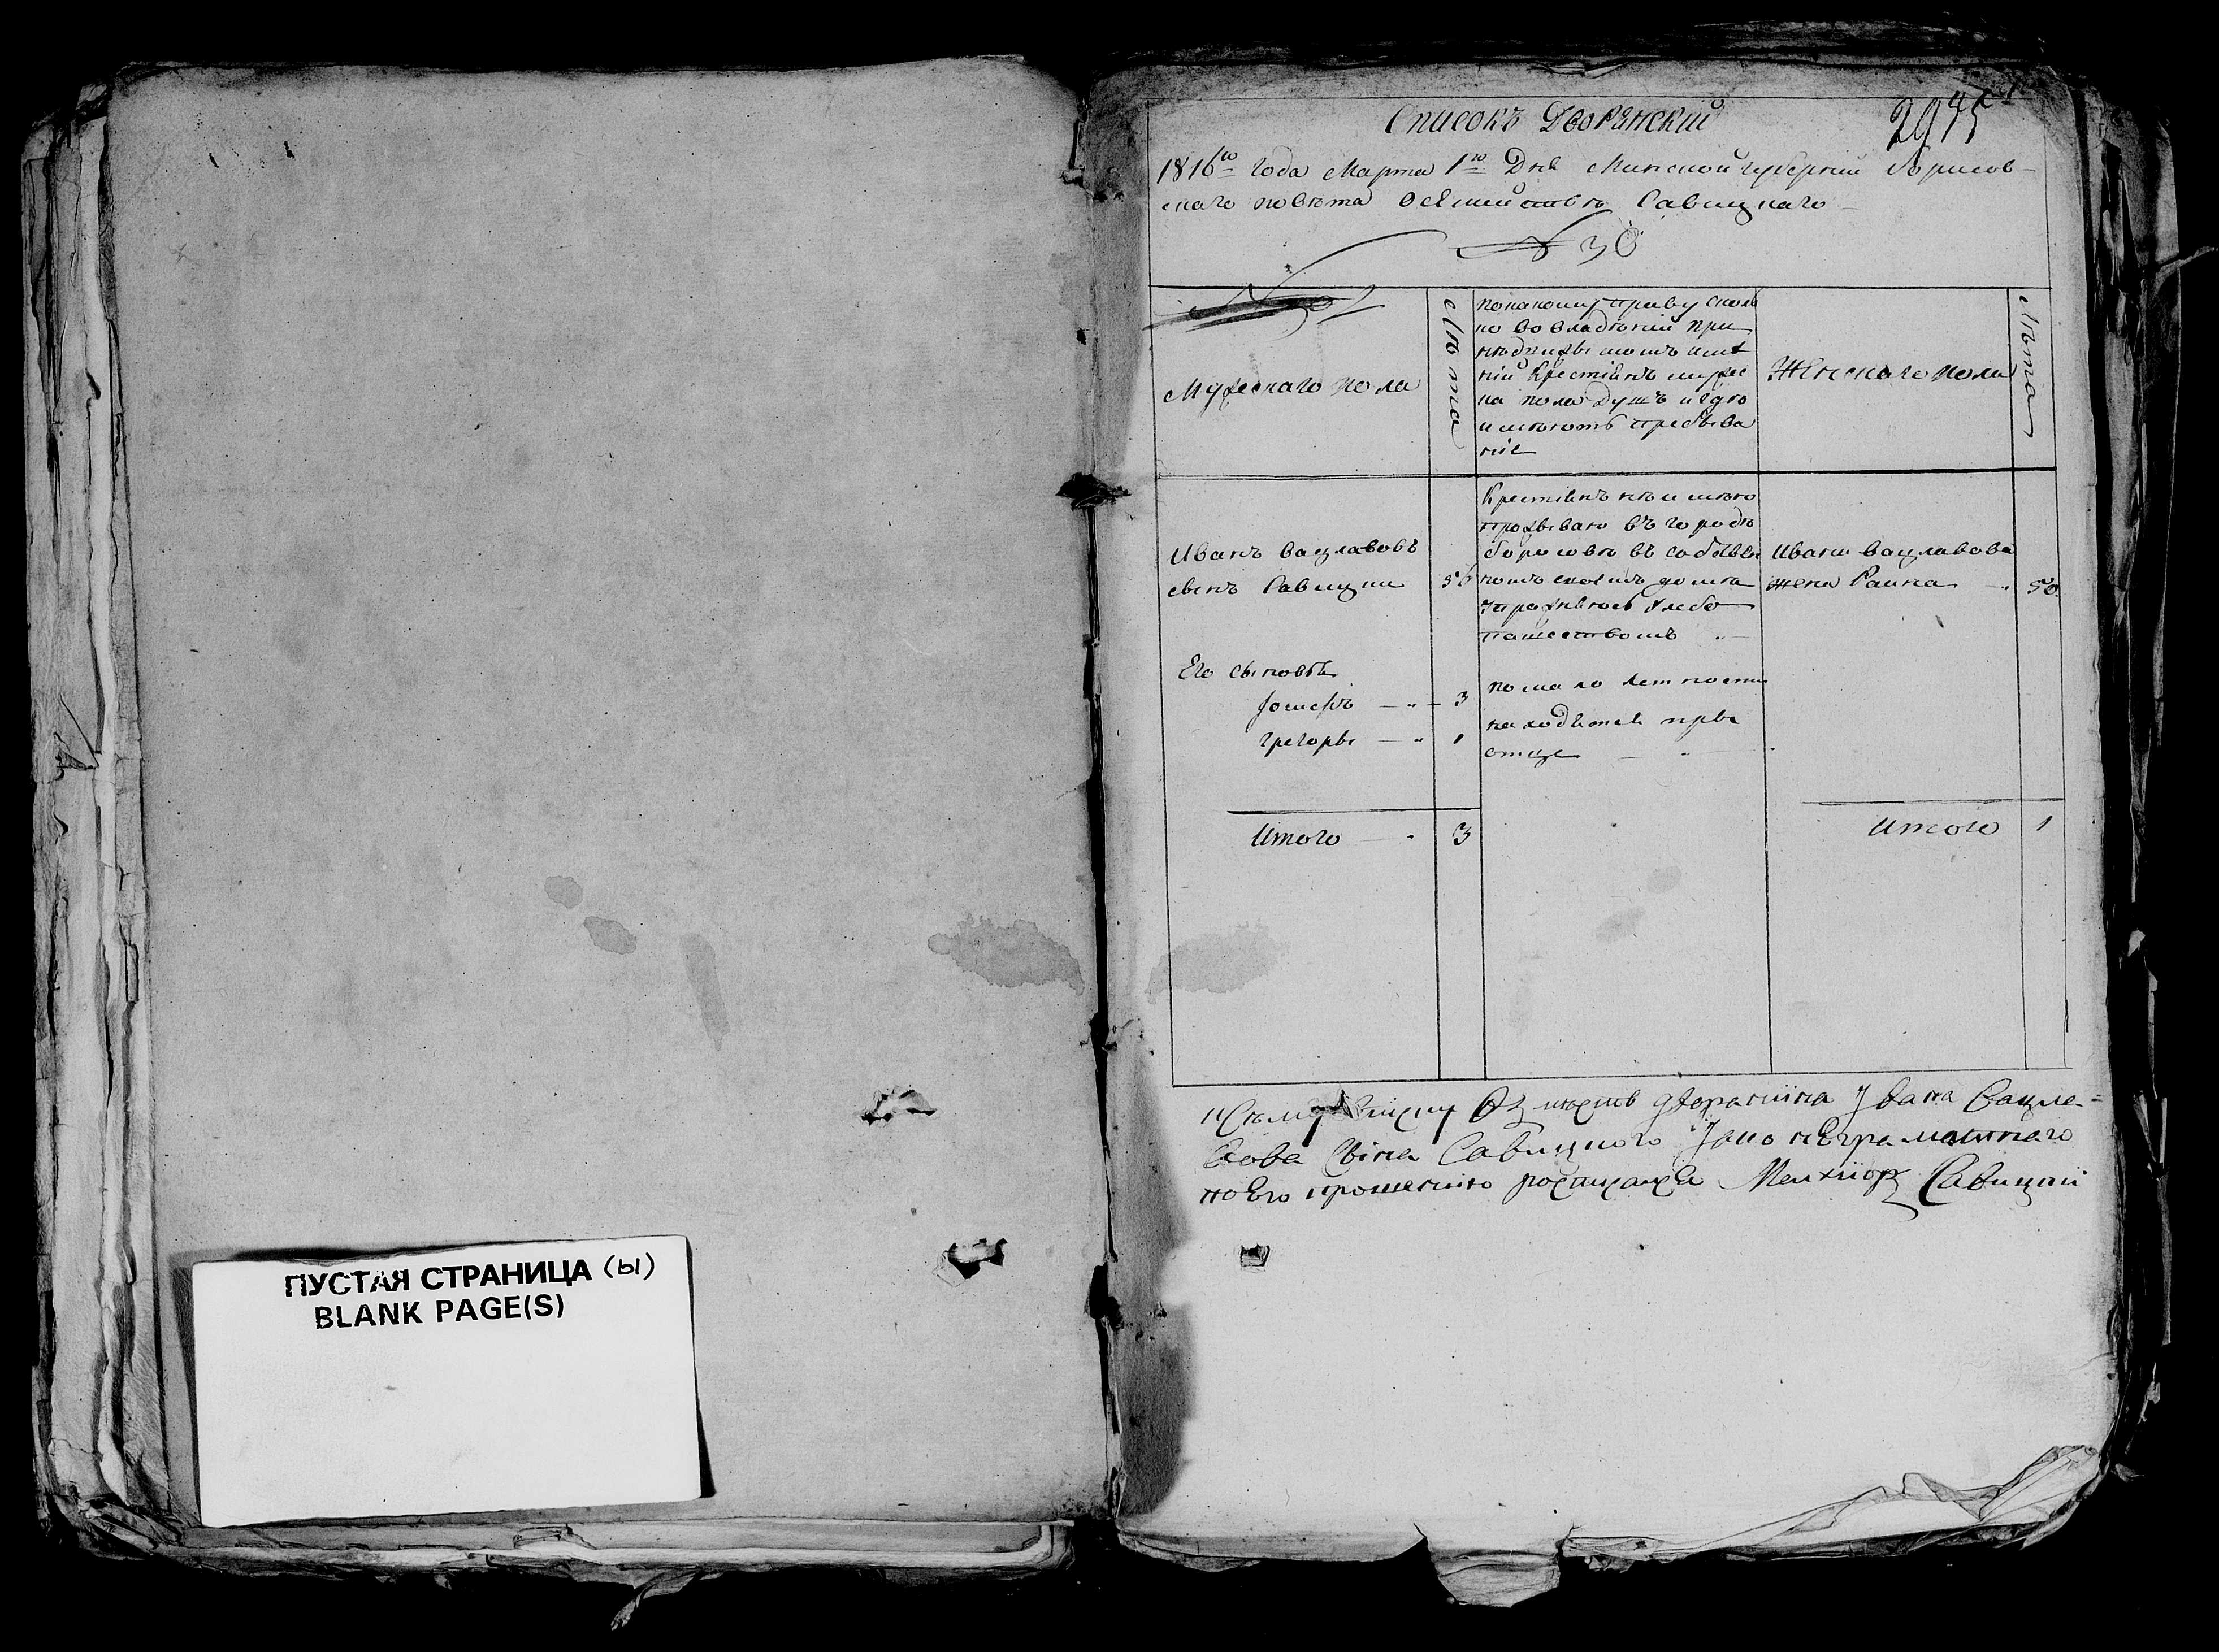 ПУСТАЯ СТРАНИЦА (ы)
BLANK PAGE(S)
Списокъ Дворянский
1816го года Марта 1го Дня Минской губернии Борисов-
скаго повѣта О семействѣ Савицкаго
№ 30
Мужескаго пола
Лѣта
по какому праву сколь
ко во владѣнии при
нии крестьянъ мужес
ка пола душъ и гдѣ
имѣютъ пребыва
ние
Женскаго пола
Лѣта
Иванъ Вацлавовъ
сынъ Савицки
56
Крестьянъ не имѣю
проживаю въ городѣ
Борисовѣ въ собствен
номъ своемъ домѣ
хлебо
пашествомъ
Ивана Вацлавова
жена
50
Его сыновья
Іосифъ 3
Грегоры 1
по мало летности
находятся при
отце
Итого 3
Итого 1
дворанина Ивана Вацла-
вова Сына Савицкого Яко неграматнаго
по Его прошению росписался Мелхиор Савицкий